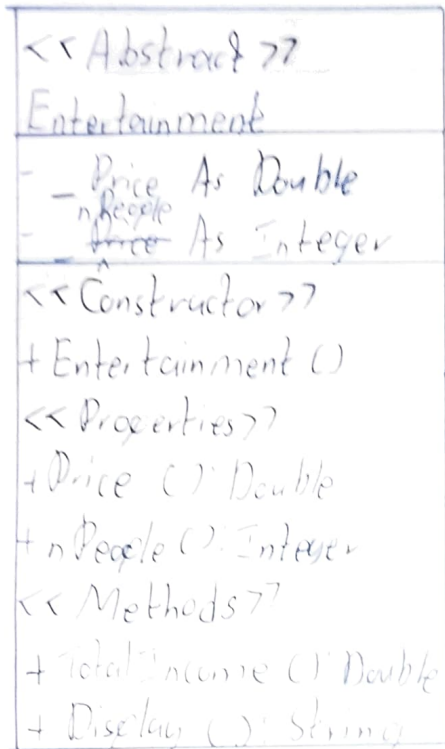 <<Abstract>>
Entertainment
- _Price As Double
- _nPeople As Integer
<<Constructor>>
+ Entertainment ()
<<Properties>>
+ Price () : Double
+ nPeople () : Integer
<<Methods>>
+ TotalIncome () : Double
+ Display () : String